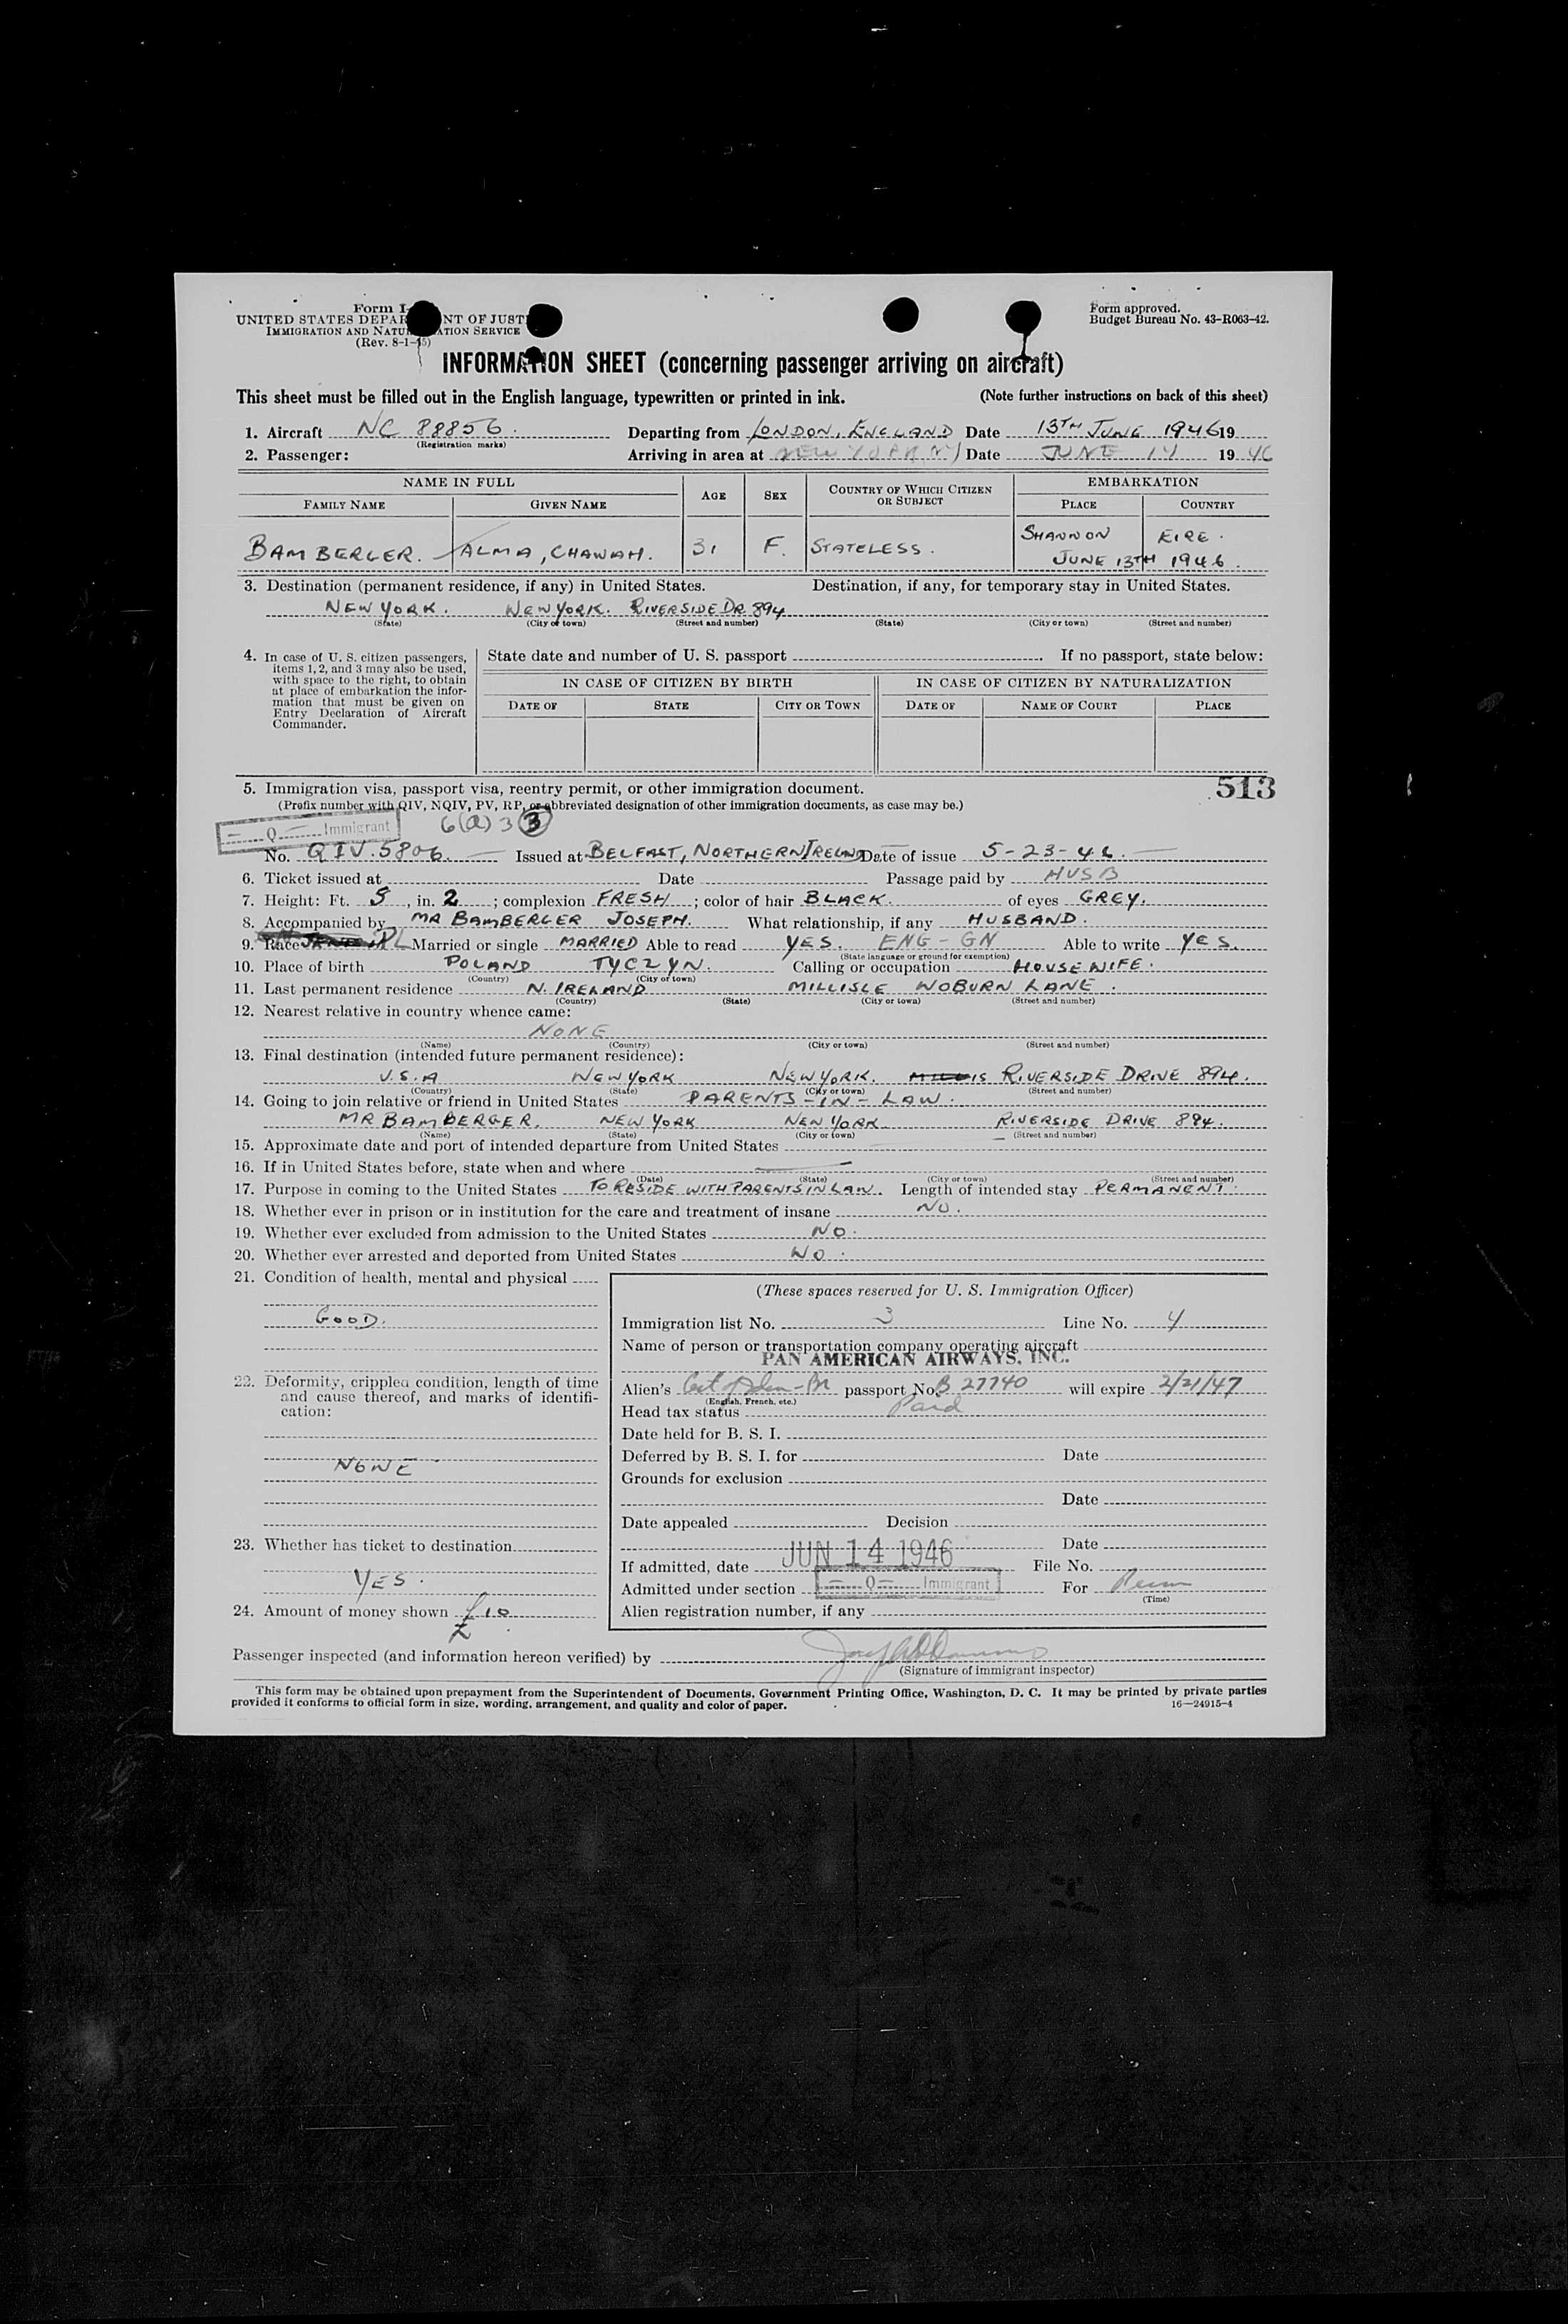 Form I-
UNITED STATES DEPAR NT OF JUST
IMMIGRATION AND NATU ATION SERVICE
(Rev. 8-1-45)
Form approved.
Budget Bureau No. 43-R063-42.
INFORMATION SHEET (concerning passenger arriving on aircraft)
This sheet must be filled out in the English language, typewritten or printed in ink. (Note further instructions on back of this sheet)
1. Aircraft NC 88856. Departing from LONDON, ENGLAND Date 13TH JUNE 1946 19
(Registration marks)
2. Passenger: Arriving in area at NEW YORK, NY Date JUNE 14 19 46
NAME IN FULL AGE SEX COUNTRY OF WHICH CITIZEN OR SUBJECT EMBARKATION
FAMILY NAME GIVEN NAME PLACE COUNTRY
BAMBERGER. ALMA, CHAWAH. 31 F. STATELESS. SHANNON EIRE.
JUNE 13TH 1946.
3. Destination (permanent residence, if any) in United States. Destination, if any, for temporary stay in United States.
NEW YORK. NEW YORK. RIVERSIDE DR. 894
(State) (City or town) (Street and number) (State) (City or town) (Street and number)
4. In case of U. S. citizen passengers, items 1, 2, and 3 may also be used, with space to the right, to obtain at place of embarkation the information that must be given on Entry Declaration of Aircraft Commander.
State date and number of U. S. passport If no passport, state below:
IN CASE OF CITIZEN BY BIRTH IN CASE OF CITIZEN BY NATURALIZATION
DATE OF STATE CITY OR TOWN DATE OF NAME OF COURT PLACE
513
5. Immigration visa, passport visa, reentry permit, or other immigration document.
(Prefix number with QIV, NQIV, PV, RP, or abbreviated designation of other immigration documents, as case may be.)
Q Immigrant 6(a) 3 3
No. QIV. 5806. Issued at BELFAST, NORTHERN IRELAND Date of issue 5-23-46.
6. Ticket issued at Date Passage paid by HUSB
7. Height: Ft. 5, in. 2; complexion FRESH; color of hair BLACK. of eyes GREY.
8. Accompanied by MR BAMBERGER JOSEPH. What relationship, if any HUSBAND.
9. Race Married or single MARRIED Able to read YES. ENG - GN Able to write YES.
(State language or ground for exemption)
10. Place of birth POLAND TYCZYN. Calling or occupation HOUSEWIFE.
(Country) (City or town)
11. Last permanent residence N. IRELAND MILLISLE WOBURN LANE.
(Country) (State) (City or town) (Street and number)
12. Nearest relative in country whence came:
NONE
(Name) (Country) (City or town) (Street and number)
13. Final destination (intended future permanent residence):
U.S.A NEW YORK NEW YORK. RIVERSIDE DRIVE 894.
(Country) (State) (City or town) (Street and number)
14. Going to join relative or friend in United States PARENTS-IN-LAW.
MR BAMBERGER. NEW YORK NEW YORK RIVERSIDE DRIVE 894.
(Name) (State) (City or town) (Street and number)
15. Approximate date and port of intended departure from United States
16. If in United States before, state when and where
(Date) (State) (City or town) (Street and number)
17. Purpose in coming to the United States TO RESIDE WITH PARENTS IN LAW. Length of intended stay PERMANENT.
18. Whether ever in prison or in institution for the care and treatment of insane NO.
19. Whether ever excluded from admission to the United States NO.
20. Whether ever arrested and deported from United States NO.
21. Condition of health, mental and physical
GOOD.
22. Deformity, crippled condition, length of time and cause thereof, and marks of identification:
NONE
23. Whether has ticket to destination
YES.
24. Amount of money shown £10
(These spaces reserved for U. S. Immigration Officer)
Immigration list No. 3 Line No. 4
Name of person or transportation company operating aircraft
PAN AMERICAN AIRWAYS, INC.
Alien's passport No. B 27740 will expire 2/21/47
(English, French, etc.)
Head tax status Paid
Date held for B. S. I.
Deferred by B. S. I. for Date
Grounds for exclusion
Date
Date appealed Decision
Date
If admitted, date JUN 14 1946 File No.
Admitted under section Q Immigrant For
(Time)
Alien registration number, if any
Passenger inspected (and information hereon verified) by
(Signature of immigrant inspector)
This form may be obtained upon prepayment from the Superintendent of Documents, Government Printing Office, Washington, D. C. It may be printed by private parties
provided it conforms to official form in size, wording, arrangement, and quality and color of paper. 16—24915-4